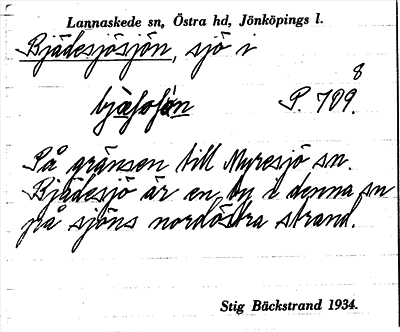 Lannaskede sn, Östra hd, Jönköpings l.
Bjädesjösjön, sjö i
8
P. 709.
På gränsen till Myresjö sn.
Bjädesjö är en by i denna sn
på sjöns nordöstra strand.
Stig Bäckstrand 1934.